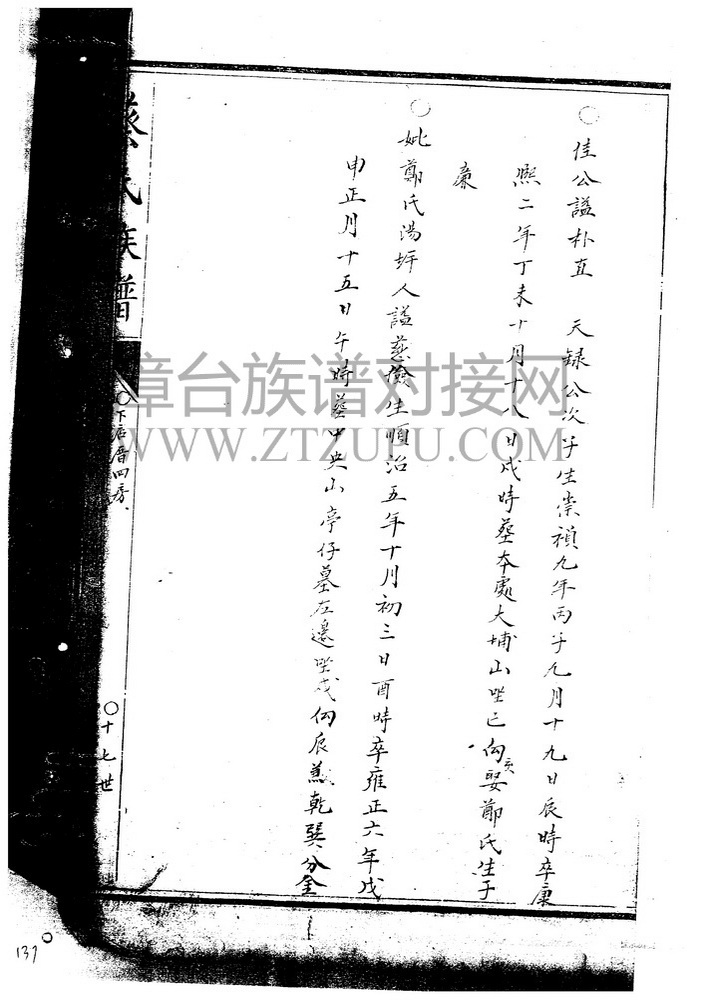 ○佳公諡朴直 天錄公次子生崇禎九年丙子九月十九日辰時卒康
熙二年丁未十月十八日戌時葬本處大埔山坐巳向亥娶鄭氏生子
廉
○妣鄭氏湯坪人諡慈儉生順治五年十月初三日酉時卒雍正六年戊
申正月十五日午時葬中央山亭仔墓左邊坐戌向辰兼乾巽分金
蔡氏族譜
○下店厝四房
○十七世
137
漳台族谱对接网
WWW.ZTZUPU.COM